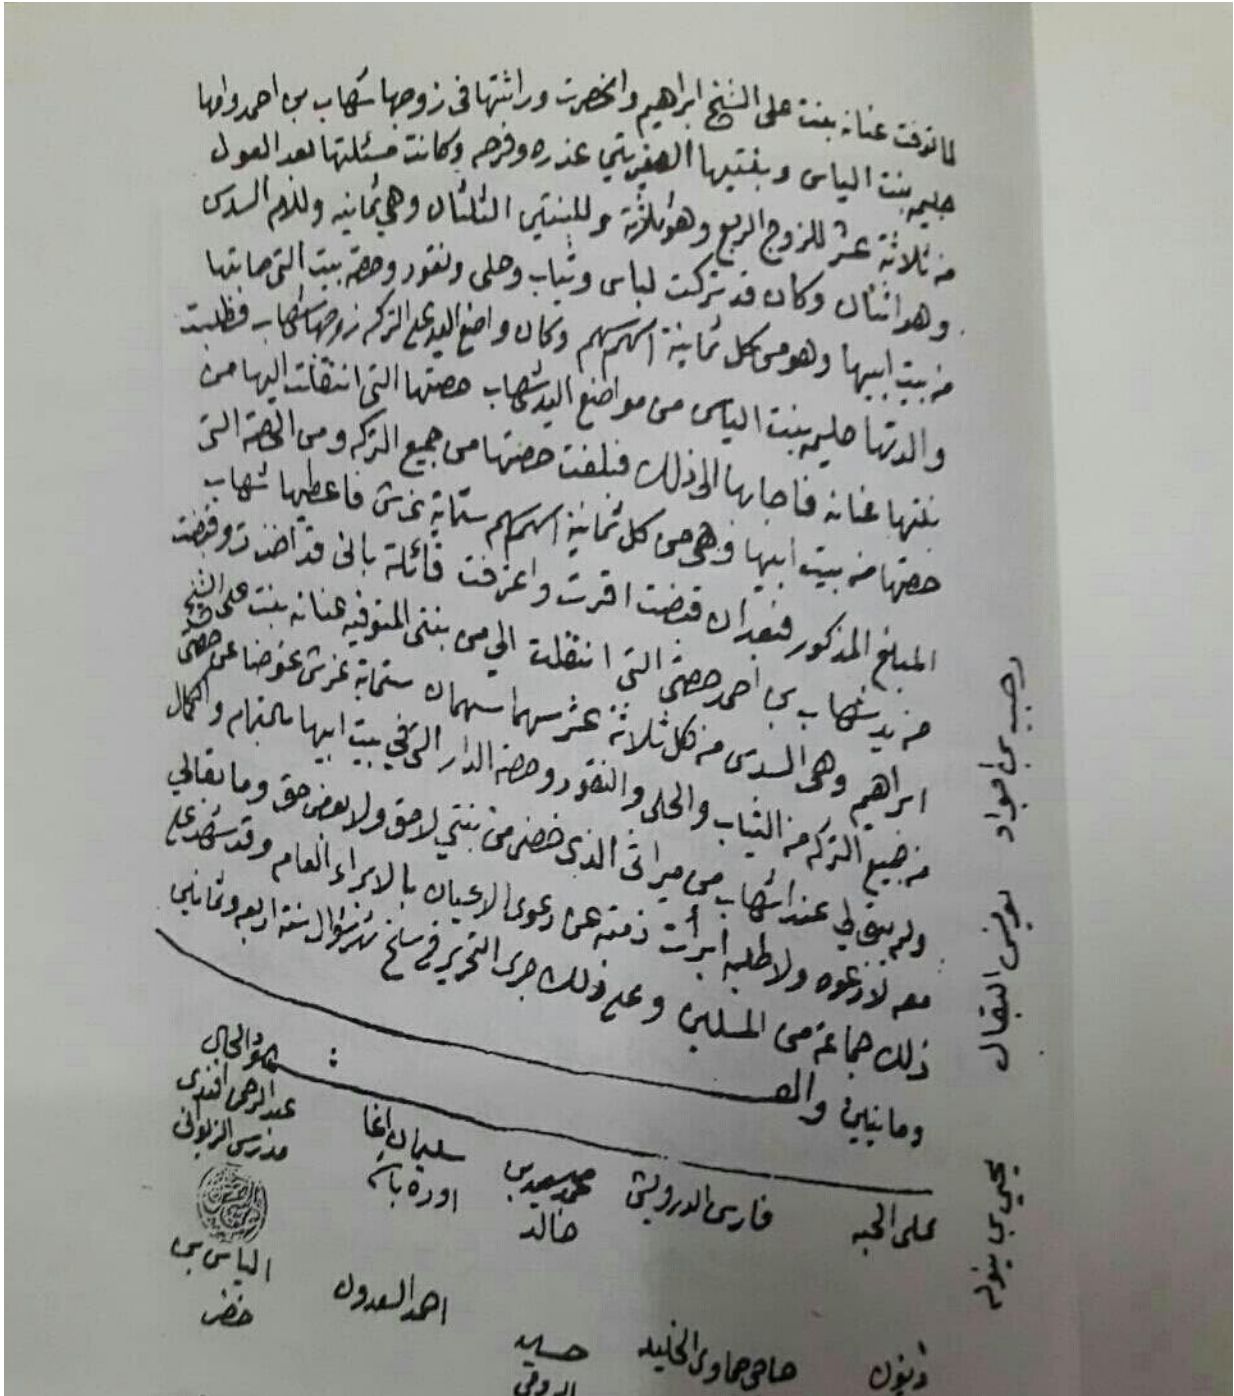 لما توفت عنانه بنت علي الشيخ ابراهيم وانحصرت وراثتها في زوجها شهاب بن احمد وامها
حليمه بنت الياس وبنتيها الصغيرتين عذره وفرحه وكانت مسئلتها بعد العول
من ثلاثة عشر للزوج الربع وهو ثلاثة وللبنتين الثلثان وهي ثمانيه وللام السدس
وهو اثنان وكان قد تركت لباس وثياب وحلى ونقود وحصة بيت التي صابتها
من بيت ابيها وهو من كل ثمانية اسهم سهم وكان واضع اليد على التركه زوجها شهاب فطلبت
والدتها حليمه بنت الياس من مواضع اليد شهاب حصتها التي انتقلت اليها من
بنتها عنانه فاجابها الى ذلك فبلغت حصتها من جميع التركه ومن الحصة التي
حصتها من بيت ابيها وهي من كل ثمانية اسهم سهم ستماية غرش فاعطيها شهاب
المبلغ المذكور فبعد ان قبضت اقرت واعترفت قائلة باني قد اخذت وقبضت
من يد شهاب بن احمد حصتي التي انتقلت الي من بنتي المتوفيه عنانه بنت علي الشيخ
ابراهيم وهي السدس من كل ثلاثة عشر سهما سهمان ستماية غرش عوضا عن حصتي
من جميع التركه من الثياب والحلى والنقود وحصة الدار التي في بيت ابيها بالتمام والكمال
ولم يبقى لي عند شهاب من ميراثي الذي خصني من بنتي لا حق ولا بعض حق وما بقالي
معه لا دعوه ولا طلبه ابرأت ذمته عن دعوى الاعيان بالابراء العام وقد شهد على
ذلك جماعة من المسلمين وعلى ذلك جرى التحرير في سلخ شهر شوال سنة اربعه وثمانين
ومايتين والف
شهود الحال
عبد الرحمن افندي
مدرس الزيواني
سليمان اغا
اوده باشي
محمد سعيد بن
خالد
فارس الدرويش
علي الحبه
الياس بن
خضر
احمد السعدون
حسين
حاجي حماوي الخليه
ذنون
رجب بن جواد
يونس البقال
يحيى بن